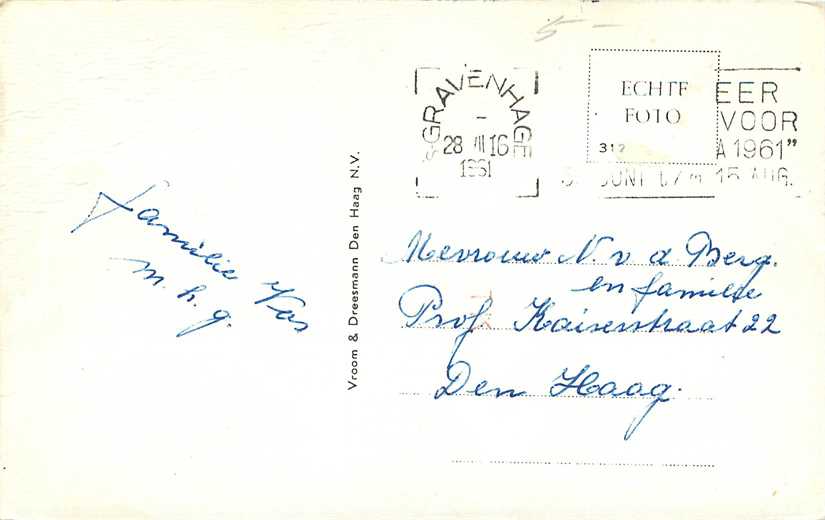 5-
'S-GRAVENHAGE
28 VII 16
1961
ECHTE
FOTO
312
EER
VOOR
A 1961"
JUNI t/m 15 AUG.
familie Vos
m. h. g.
Vroom & Dreesmann Den Haag N.V.
Mevrouw N. v d Berg.
en familie
Prof Kaiserstraat 22
Den Haag.